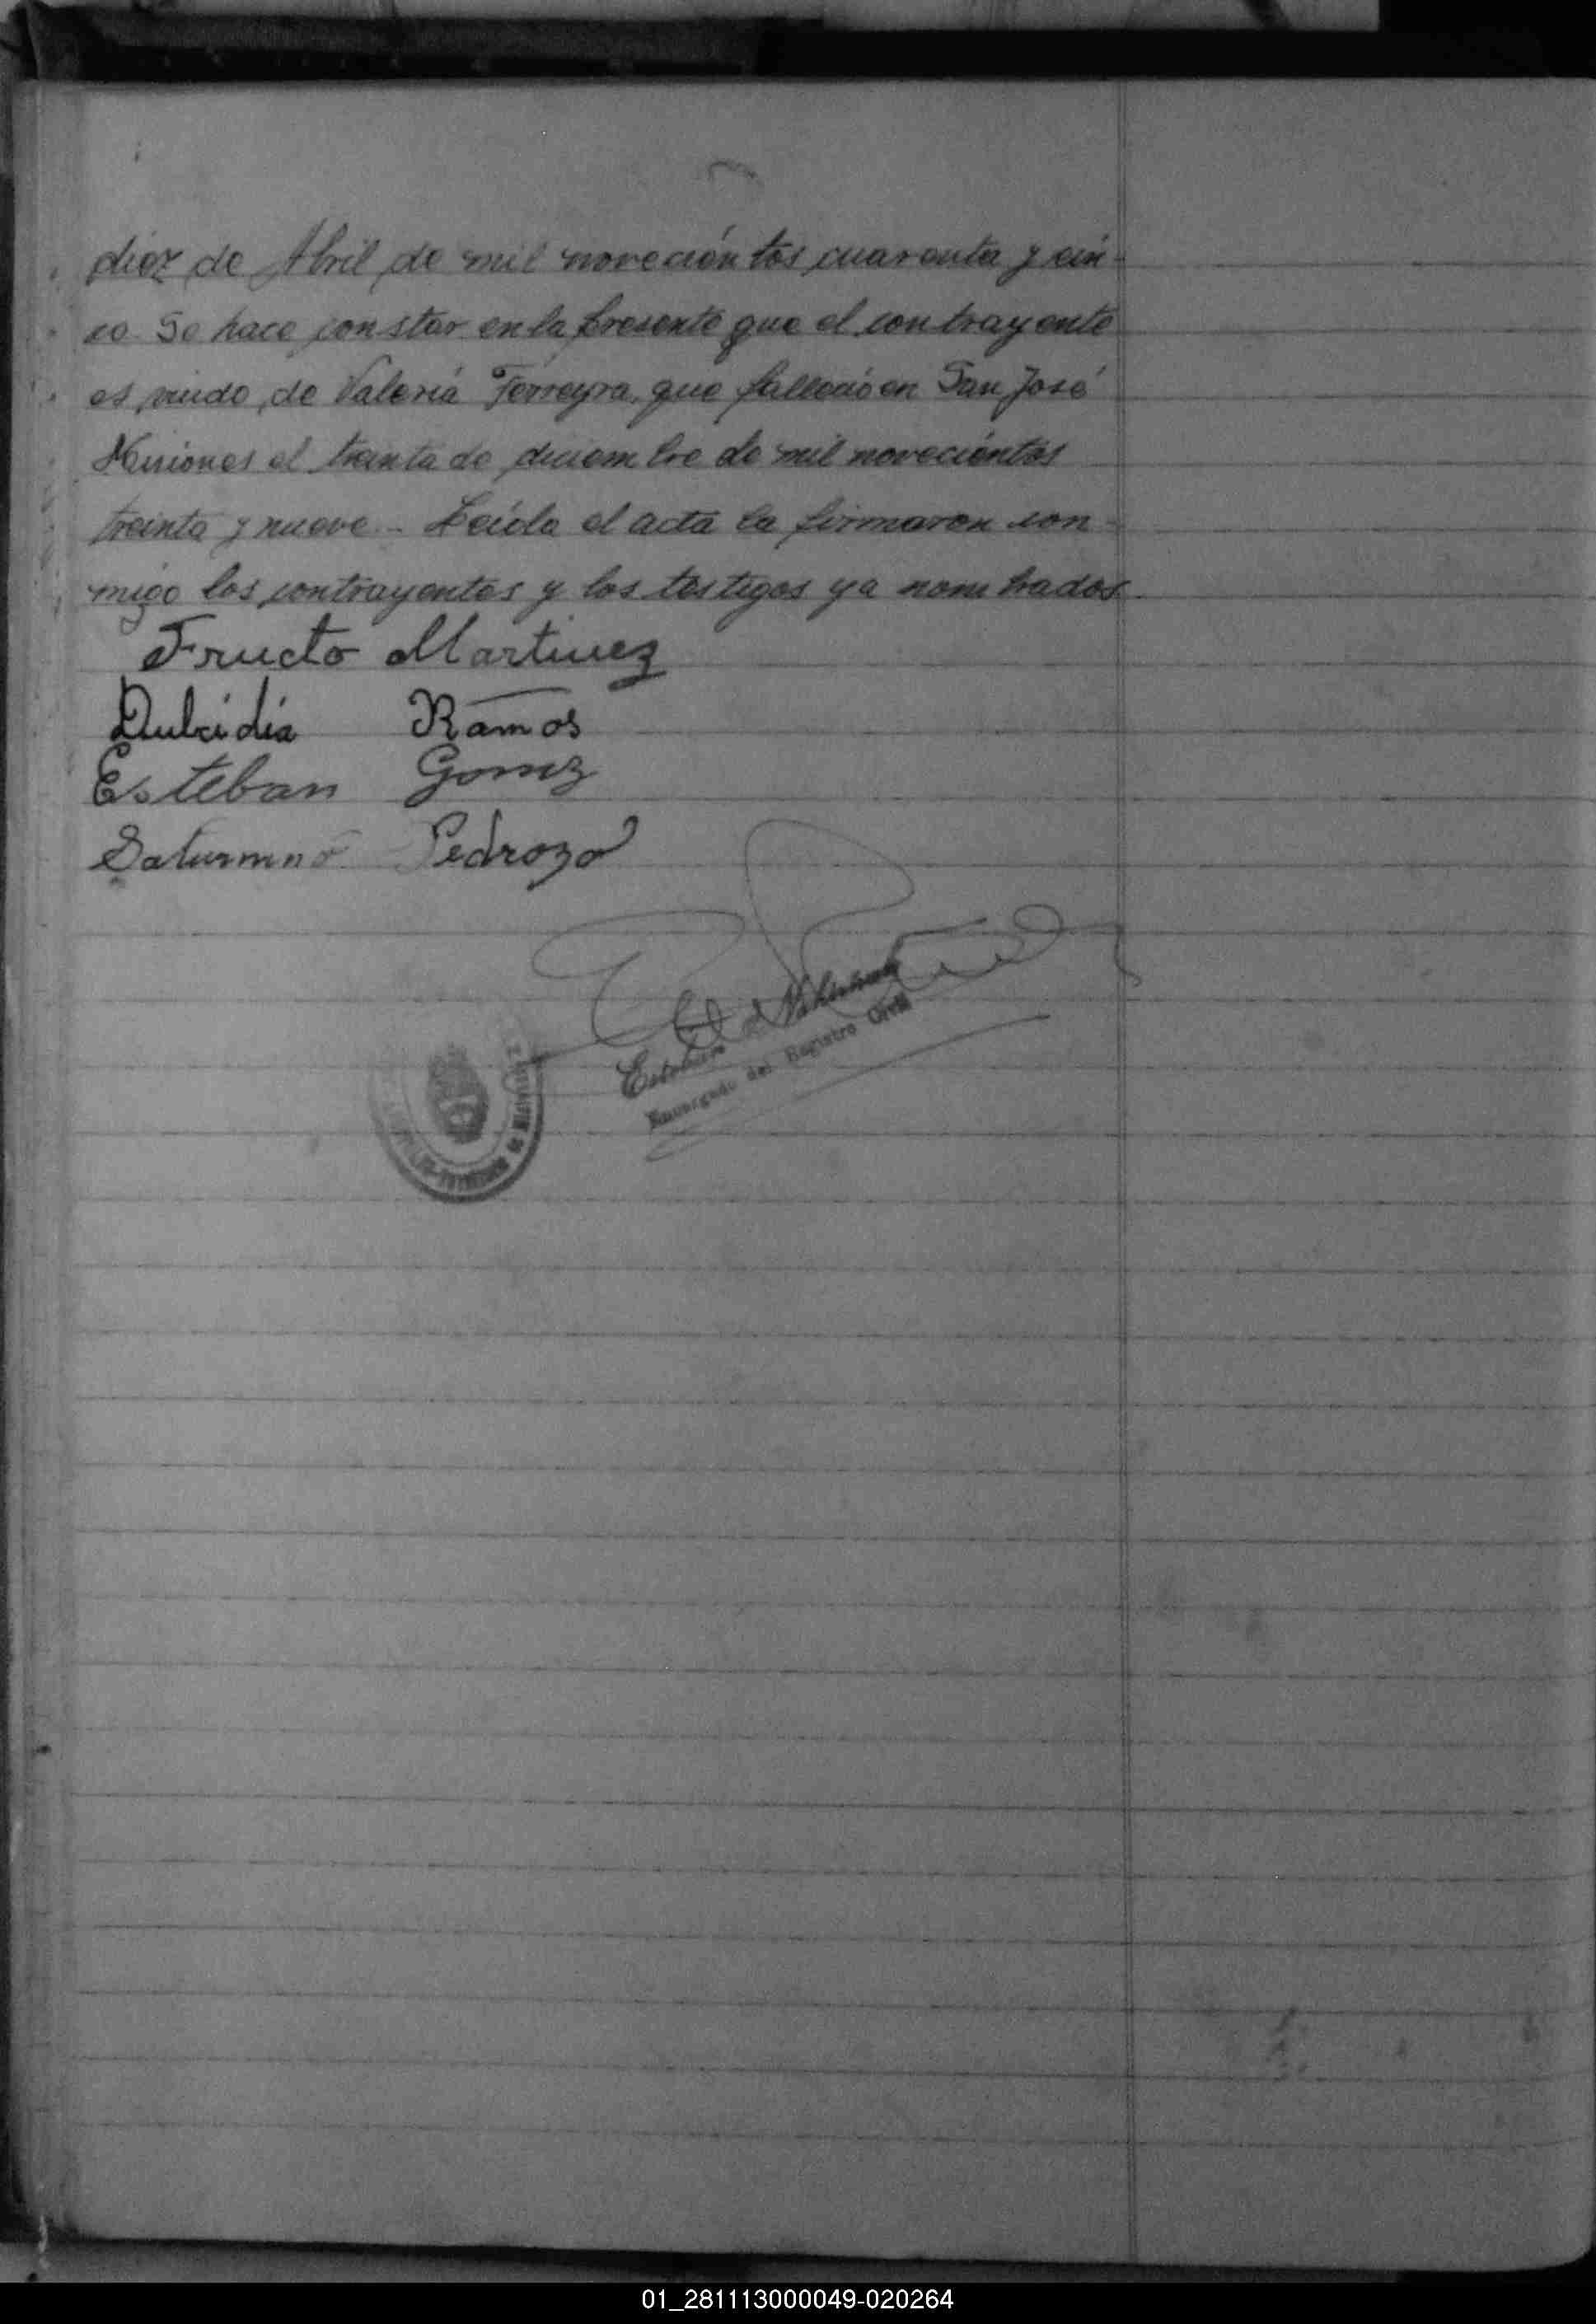 diez de Abril de mil noveciéntos cuarenta y cin-
co. Se hace constar en la presente que el contrayente
es viudo, de Valeria Ferreyra, que falleció en San José
Misiones el treinta de diciembre de mil noveciéntos
treinta y nueve.- Leída el acta la firmaron con-
migo los contrayentes y los testigos ya nombrados.
Fructo Martinez
Dulcidia Ramos
Esteban Gomez
Saturnino Pedrozo
Esteban
Encargado del Registro Civil
de Misiones
01_281113000049-020264